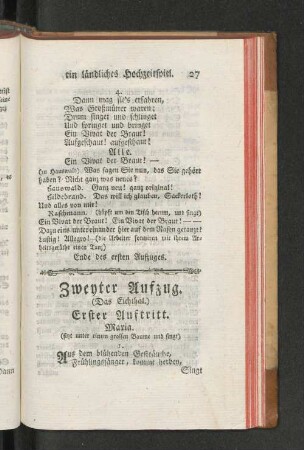 ein ländliches Hochzeitspiel. 27
4.
Dann mag sie's erfahren,
Was Großmütter waren:
Drum singet und schwinget
Und springet und bringet
Ein Vivat der Braut!
Aufgeschaut! aufgeschaut!
Alle.
Ein Vivat der Braut! —
(zu Hanswald). Was sagen Sie nun, das Sie gehört
haben? Nicht ganz was neues?
Hanswald. Ganz neu! ganz original!
Hildebrand. Das will ich glauben, Sackerloth!
Und alles von mir!
Raschmann. (hüpft um den Tisch herum, und singt)
Ein Vivat der Braut! Ein Vivat der Braut! — —
Dazu eins untereinander hier auf dem Rasen getanzt!
Lustig! Allegro! — (die Arbeiter formiren mit ihrem
beitsgeräthe einen Tanz)
Ende des ersten Aufzuges.
Zweyter Aufzug.
(Das Eichthal.)
Erster Auftritt.
Maria.
(sitzt unter einem grossen Baume und singt)
1.
Aus dem blühenden Gesträuche,
Frühlingssänger, kommt herbey,
Singt